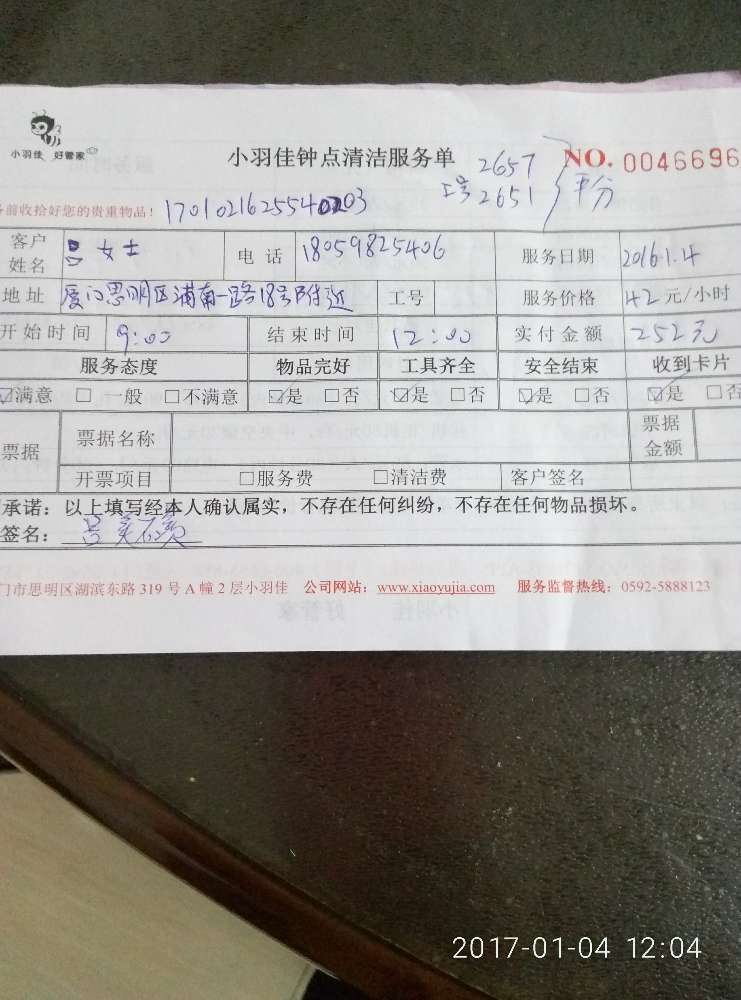 小羽佳 好管家
小羽佳钟点清洁服务单
2657
工号 2651
平分
NO. 0046696
前收拾好您的贵重物品!
客户姓名 吕女士 电话 18059825406 服务日期 2016.1.4
地址 厦门思明区浦南一路18号附近 工号 服务价格 42元/小时
开始时间 9:00 结束时间 12:00 实付金额 252元
服务态度 物品完好 工具齐全 安全结束 收到卡片
☑满意 □一般 □不满意 ☑是 □否 ☑是 □否 ☑是 □否 ☑是 □否
票据 票据名称 票据金额
开票项目 □服务费 □清洁费 客户签名
承诺:以上填写经本人确认属实,不存在任何纠纷,不存在任何物品损坏。
签名:吕
门市思明区湖滨东路 319 号 A 幢 2 层小羽佳 公司网站:www.xiaoyujia.com 服务监督热线:0592-5888123
2017-01-04 12:04